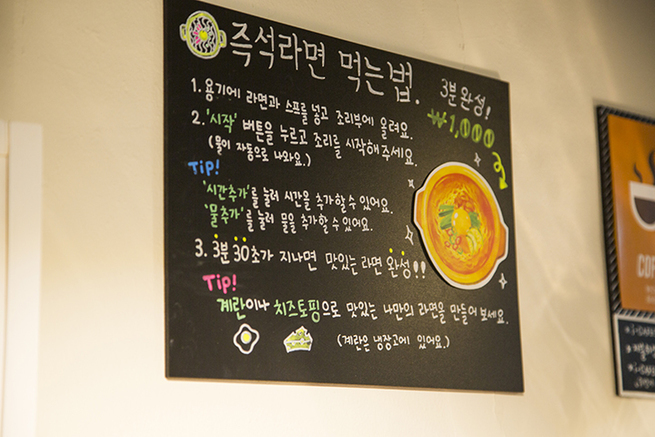 즉석라면 먹는법.
3분완성!
₩1,000
1. 용기에 라면과 스프를 넣고 조리부에 올려요.
2. '시작' 버튼을 누르고 조리를 시작해주세요.
(물이 자동으로 나와요.)
Tip!
'시간추가'를 눌러 시간을 추가할 수 있어요.
'물추가'를 눌러 물을 추가할 수 있어요.
3. 3분 30초가 지나면 맛있는 라면 완성!!
Tip!
계란이나 치즈토핑으로 맛있는 나만의 라면을 만들어 보세요.
(계란은 냉장고에 있어요.)